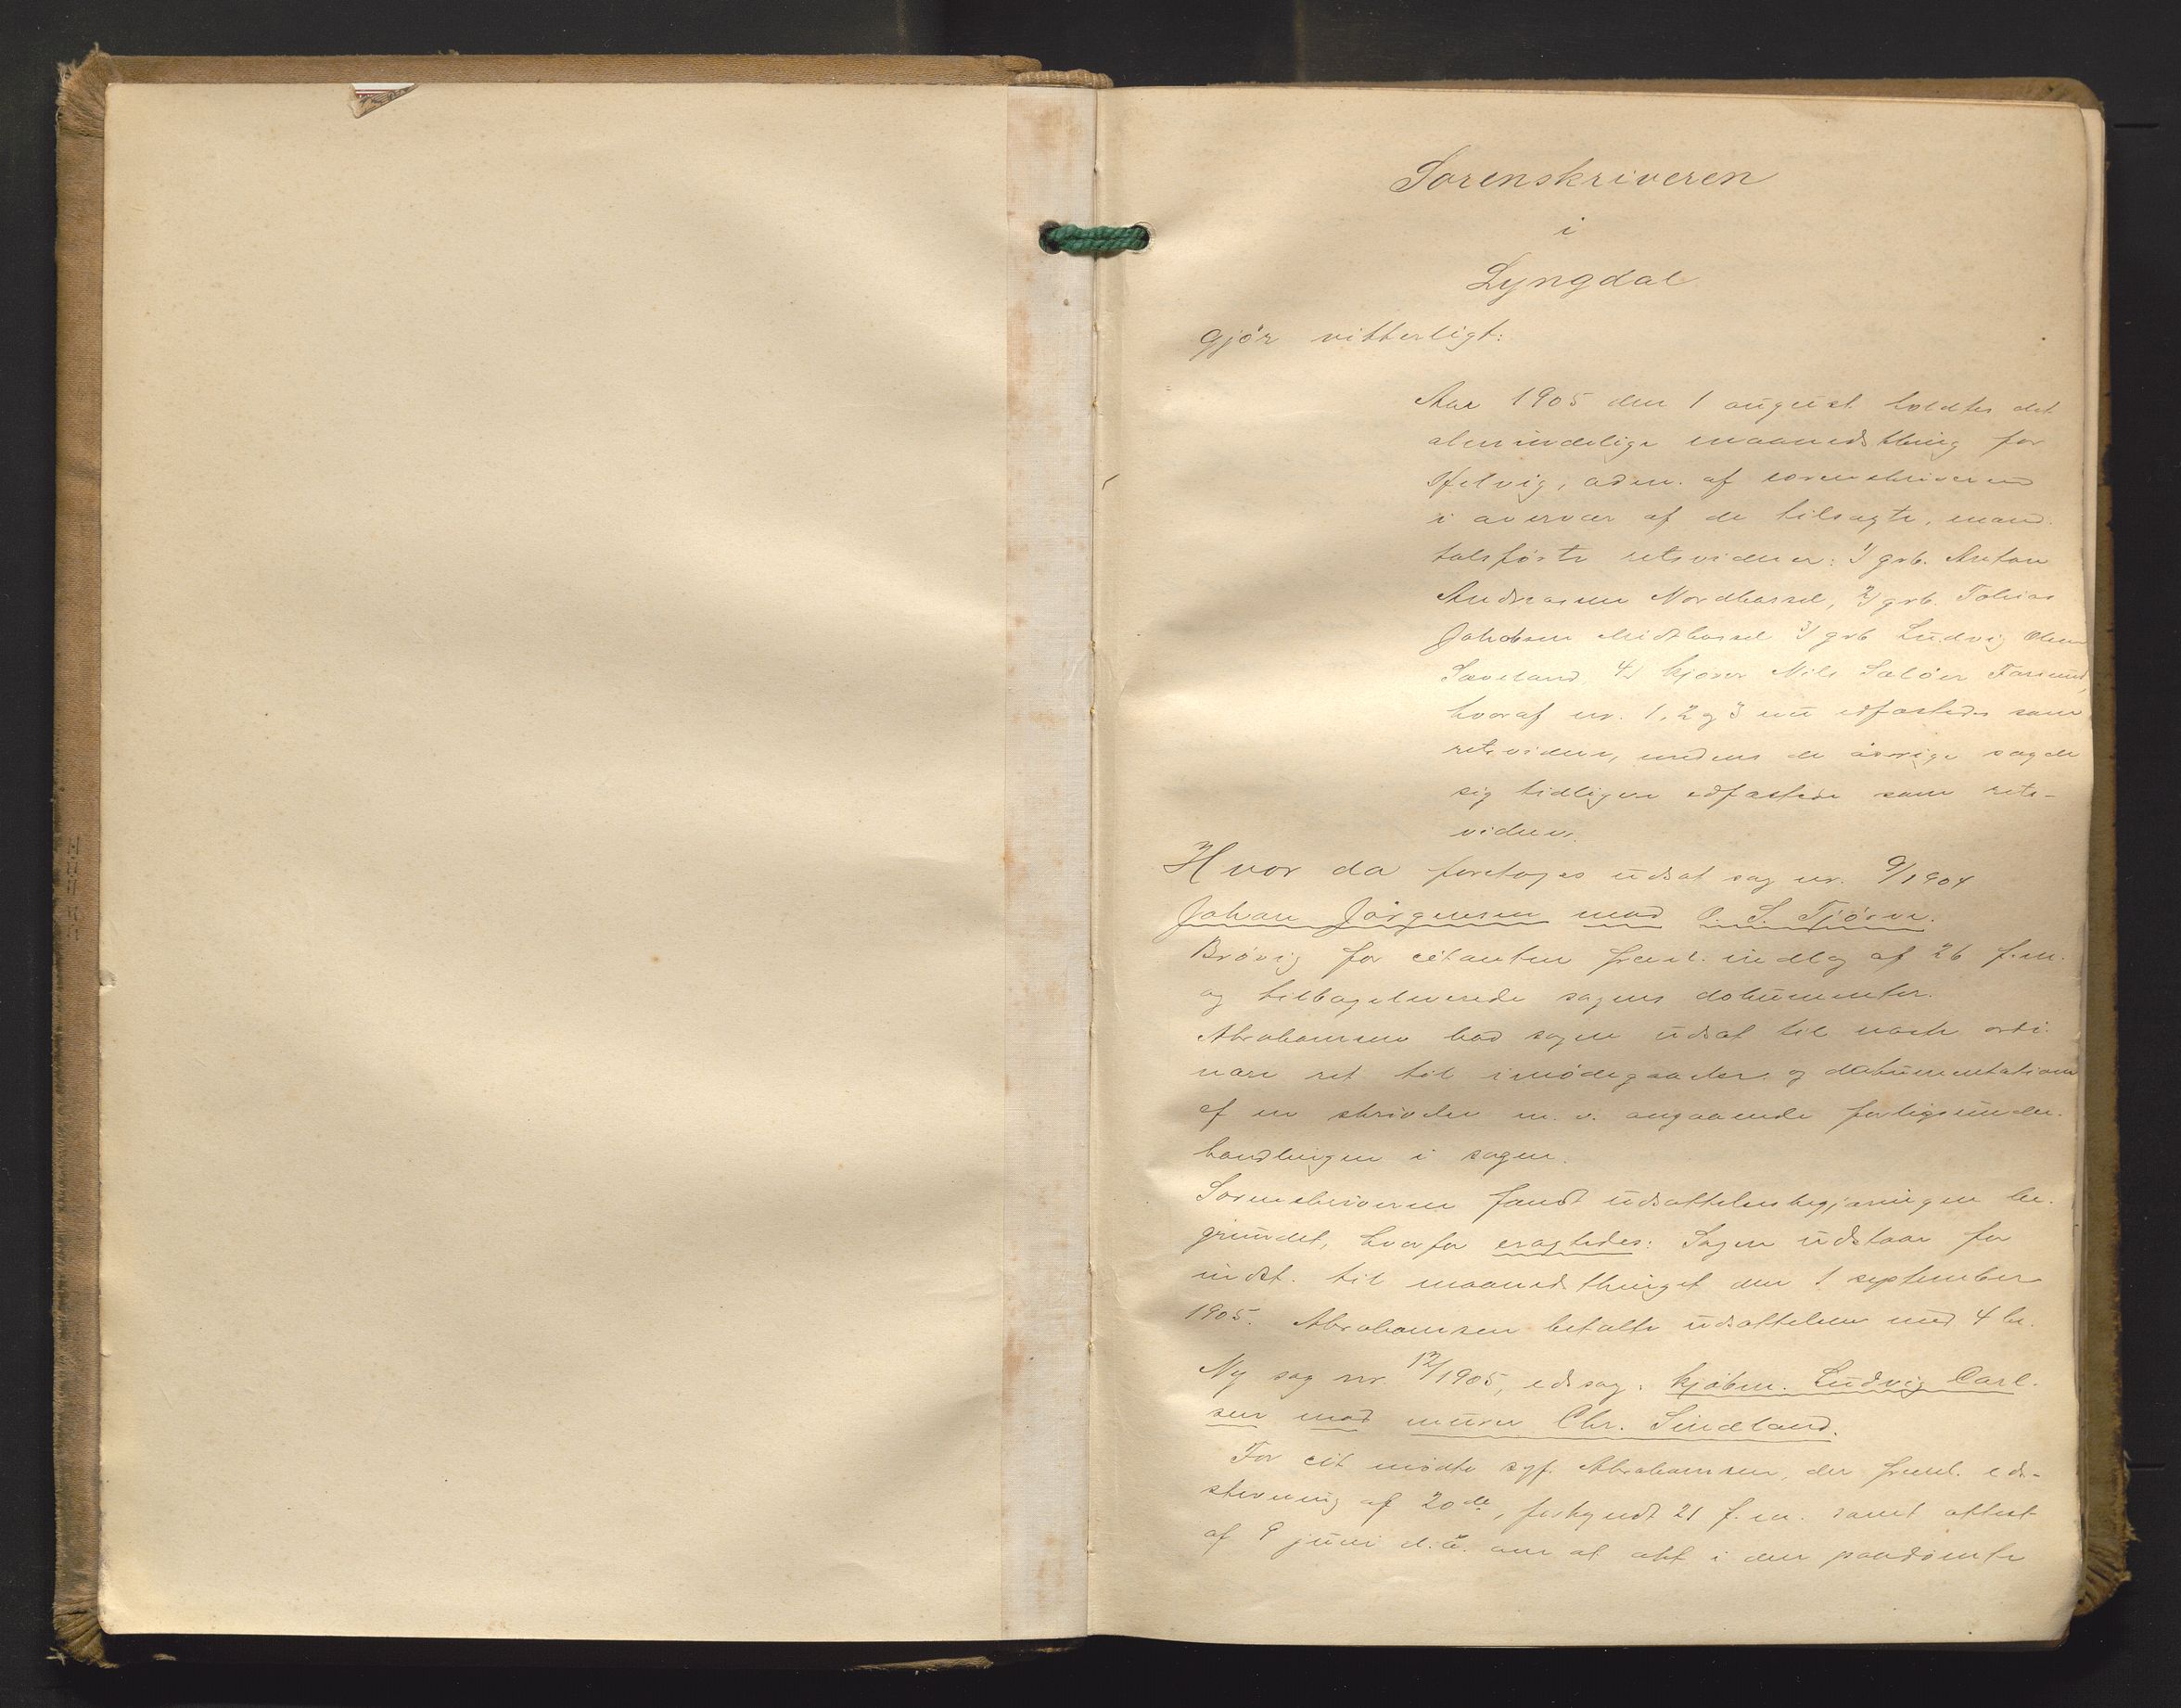 Sorenskriveren
i
Lyngdal
gjör vitterligt:
Aar 1905 den 1 august holdtes det
almindelige maanedsthing for
Helvig, adm. af sorenskriveren
i overvær af de tilsagte, mand-
talsførte retsvidner: 1/ grb. Anton
Andreasen Nordhassel, 2/ grb. Tobias
Jakobsen Midthassel 3/ grb Ludvig Olsen
Sæveland 4/ kjører Nils Farsund,
hvoraf nr. 1, 2 og 3 nu edfæstedes som
retsvidner, medens de øvrige sagde
sig tidligere edfæstede som rets-
vidner.
Hvor da foretoges udsat sag nr. 9/1904
Johan Jörgensen mod O. S. Tjörve.
Brövig for citanten freml. indlæg af 26 f.m.
og tilbageleverede sagens dokumenter.
Abrahamsen bad sagen udsat til næste ordi-
nære ret til imødegaaelse og dokumentation
af en skrivelse m. v. angaaende forligsunder-
handlingen i sagen.
Sorenskriveren fandt udsættelsesbegjæringen be-
grundet, hvorfor eragtedes: Sagen udstaar for
indst. til maanedsthinget den 1 september
1905. Abrahamsen betalte udsættelsen med 4 kr.
Ny sag nr. 12/1905, edsag: kjøbm. Ludvig Carl-
sen mod murer Chr. Sindland.
For cit mødte sgf. Abrahamsen, der freml. eds-
stevning af 20de, forkyndt 21 f. m. samt attest
af 9 juni d.å. om at at i den paadömte